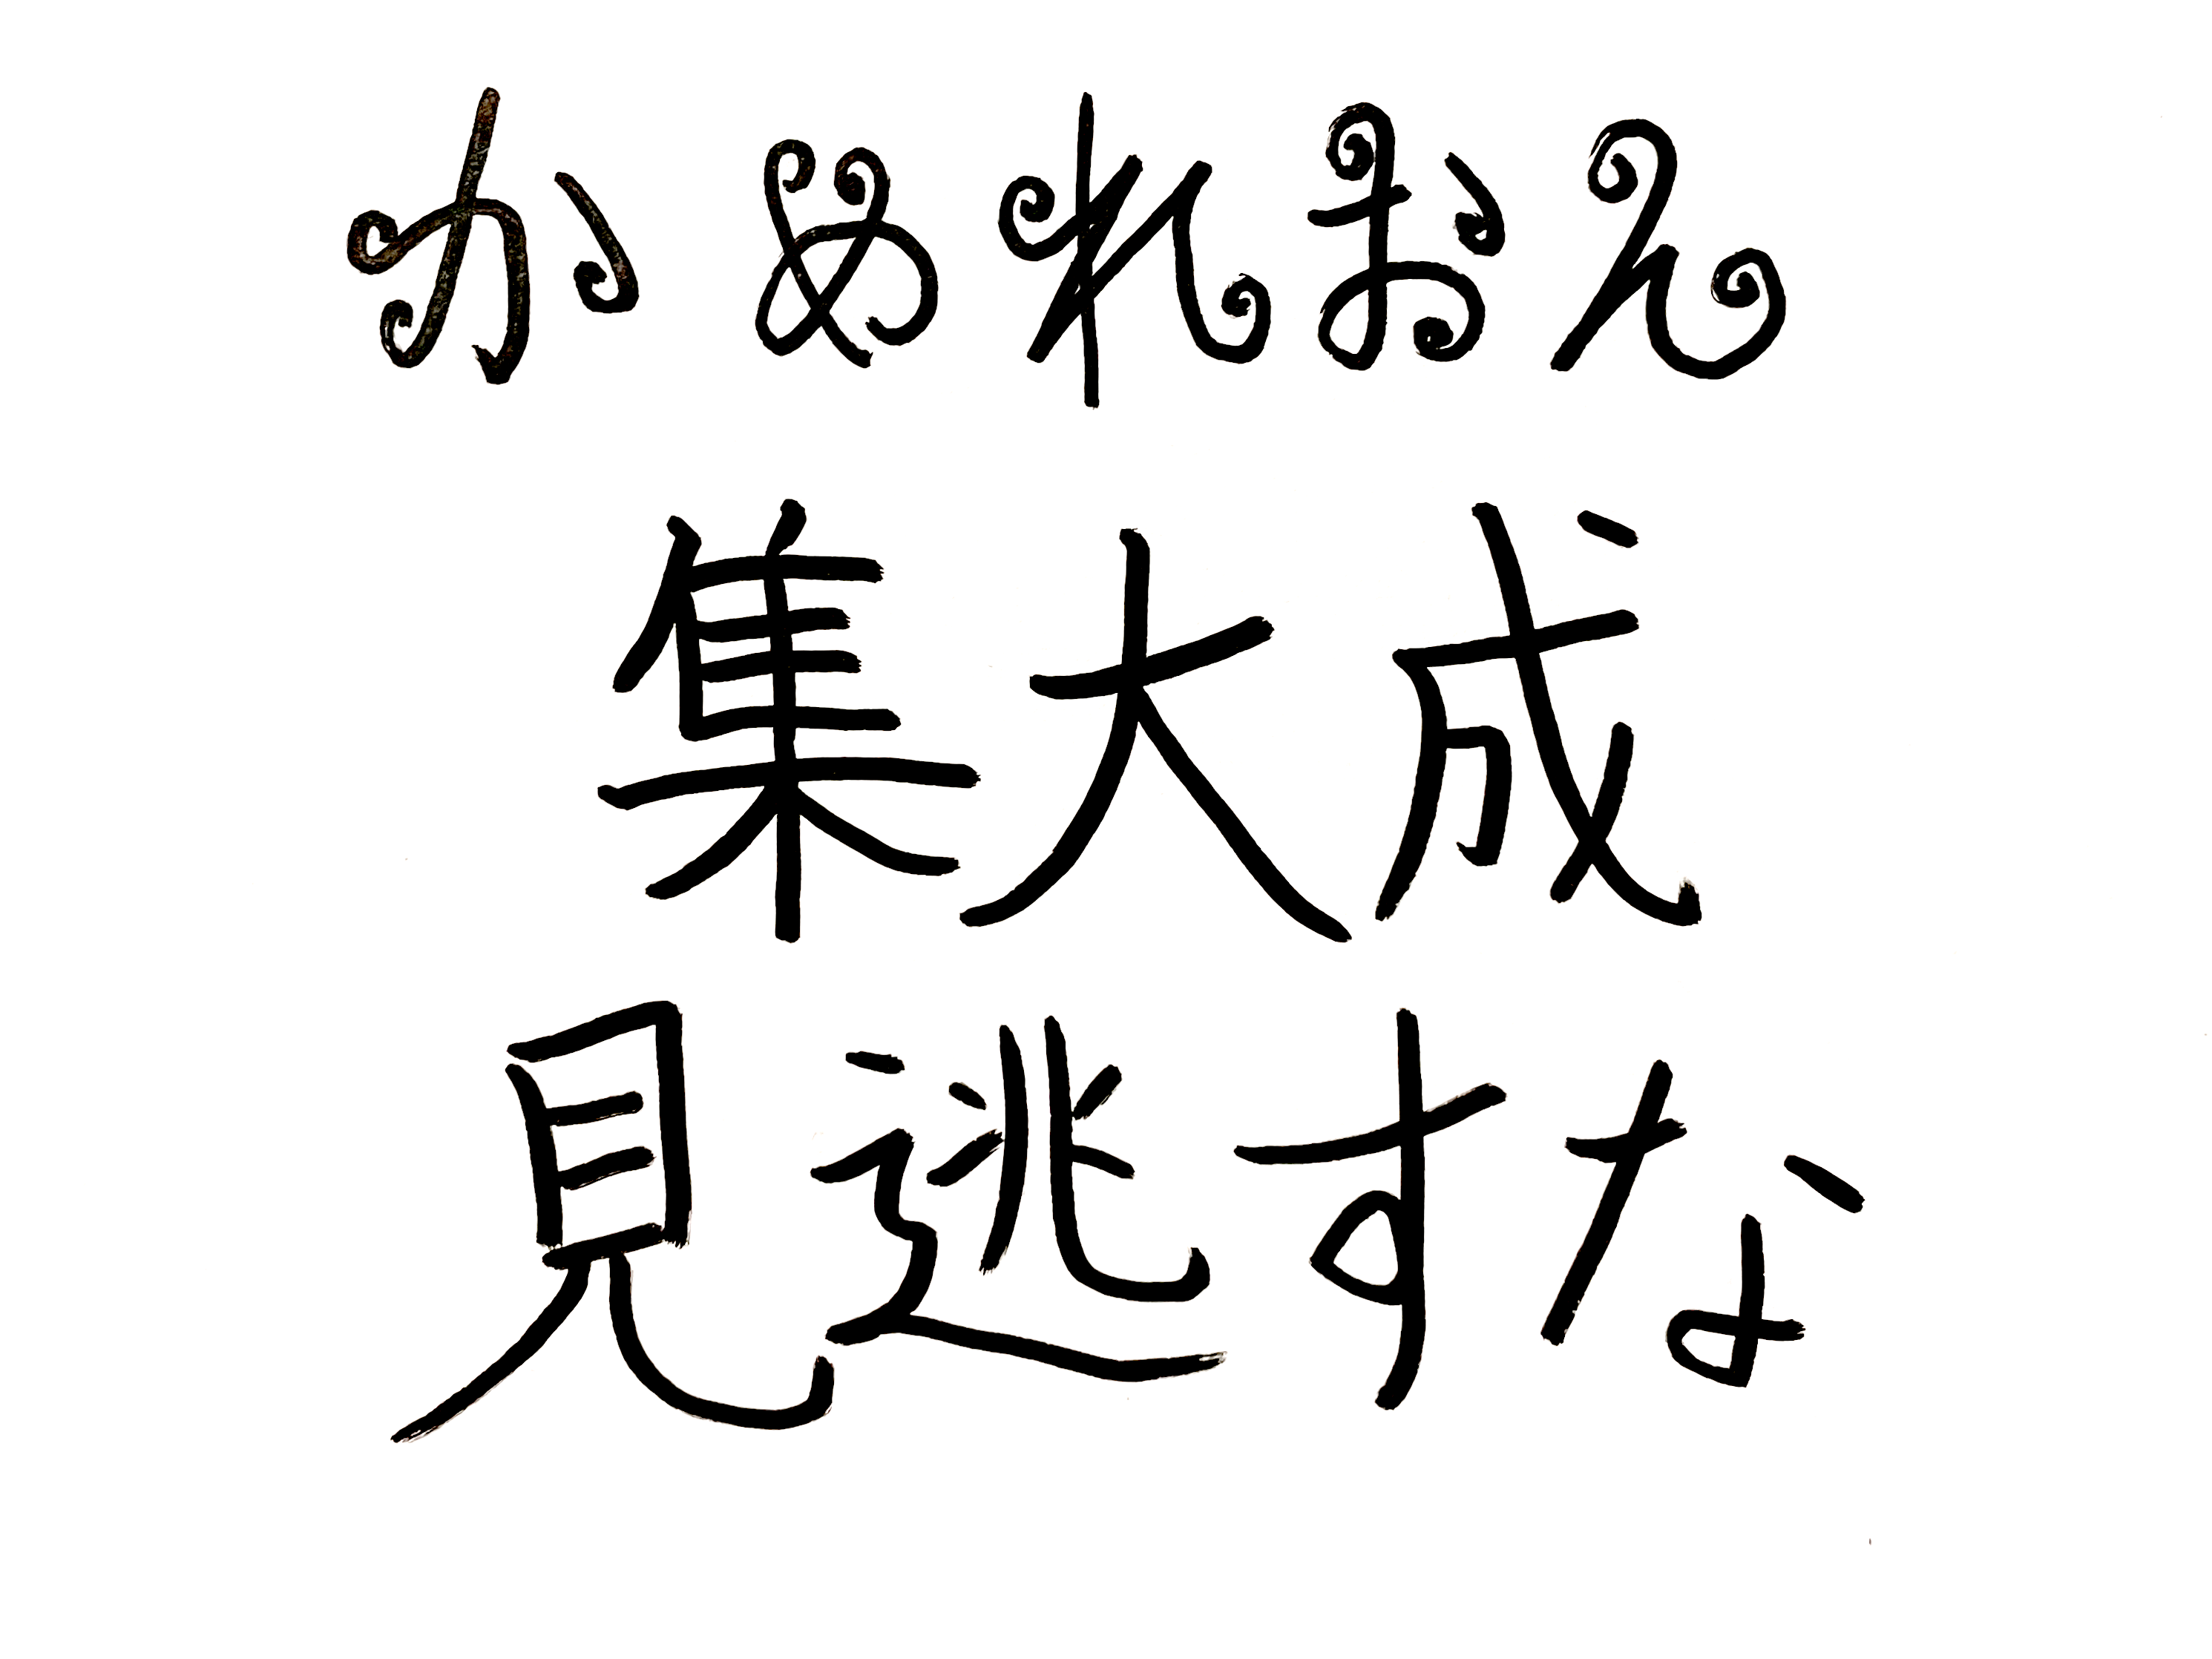 かめれおん
集大成
見逃すな